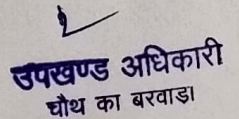 उपखण्ड अधिकारी
चौथ का बरवाडा